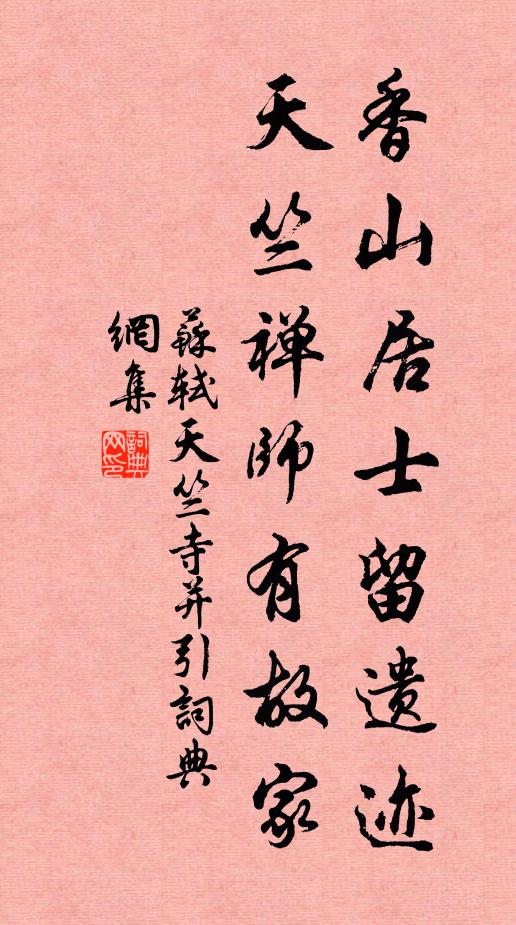 香山居士留遗迹
天竺禅师有故家
蘇軾天竺寺并引詞典
網集
詞典网印